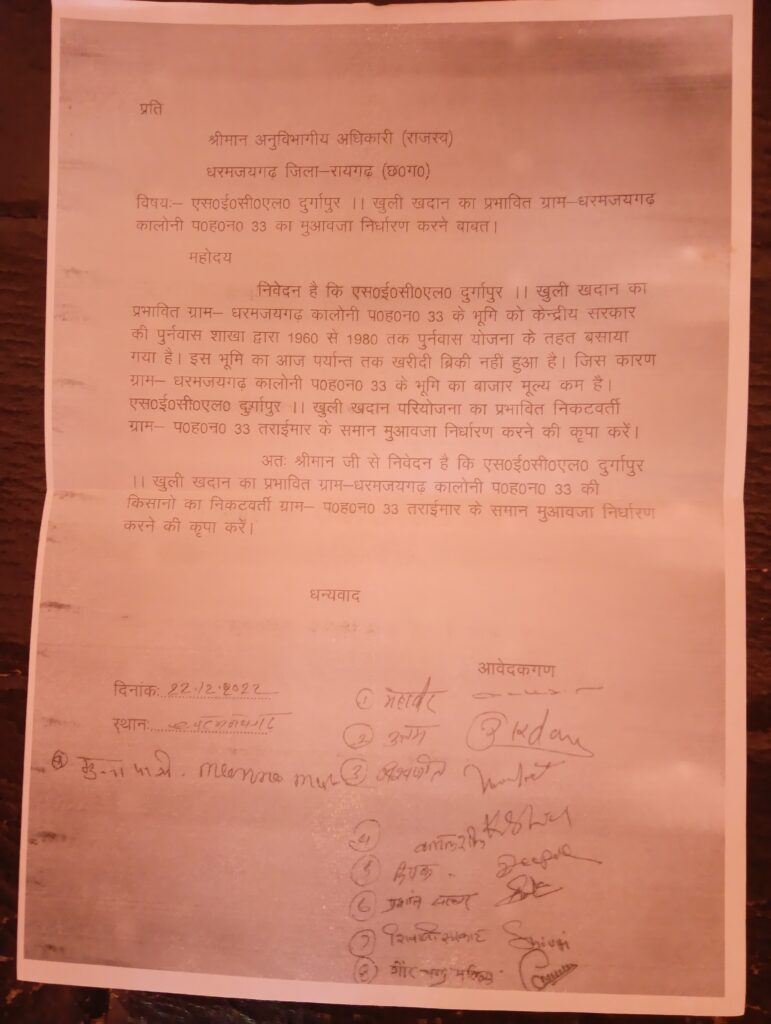 प्रति
श्रीमान अनुविभागीय अधिकारी (राजस्व)
धरमजयगढ़ जिला–रायगढ़ (छ०ग०)
विषयः– एस०ई०सी०एल० दुर्गापुर ।। खुली खदान का प्रभावित ग्राम–धरमजयगढ़
कालोनी प०ह०न० 33 का मुआवजा निर्धारण करने बाबत।
महोदय
निवेदन है कि एस०ई०सी०एल० दुर्गापुर ।। खुली खदान का
प्रभावित ग्राम– धरमजयगढ़ कालोनी प०ह०न० 33 के भूमि को केन्द्रीय सरकार
की पुर्नवास शाखा द्वारा 1960 से 1980 तक पुर्नवास योजना के तहत बसाया
गया है। इस भूमि का आज पर्यान्त तक खरीदी ब्रिकी नहीं हुआ है। जिस कारण
ग्राम– धरमजयगढ़ कालोनी प०ह०न० 33 के भूमि का बाजार मूल्य कम है।
एस०ई०सी०एल० दुर्गापुर ।। खुली खदान परियोजना का प्रभावित निकटवर्ती
ग्राम– प०ह०न० 33 तराईमार के समान मुआवजा निर्धारण करने की कृपा करें।
अतः श्रीमान जी से निवेदन है कि एस०ई०सी०एल० दुर्गापुर
।। खुली खदान का प्रभावित ग्राम–धरमजयगढ़ कालोनी प०ह०न० 33 की
किसानो का निकटवर्ती ग्राम– प०ह०न० 33 तराईमार के समान मुआवजा निर्धारण
करने की कृपा करें।
धन्यवाद
आवेदकगण
दिनांक: 22.12.2022
स्थान:
①
② उत्तम
③
④
⑤ दीपक
⑥
⑦
⑧